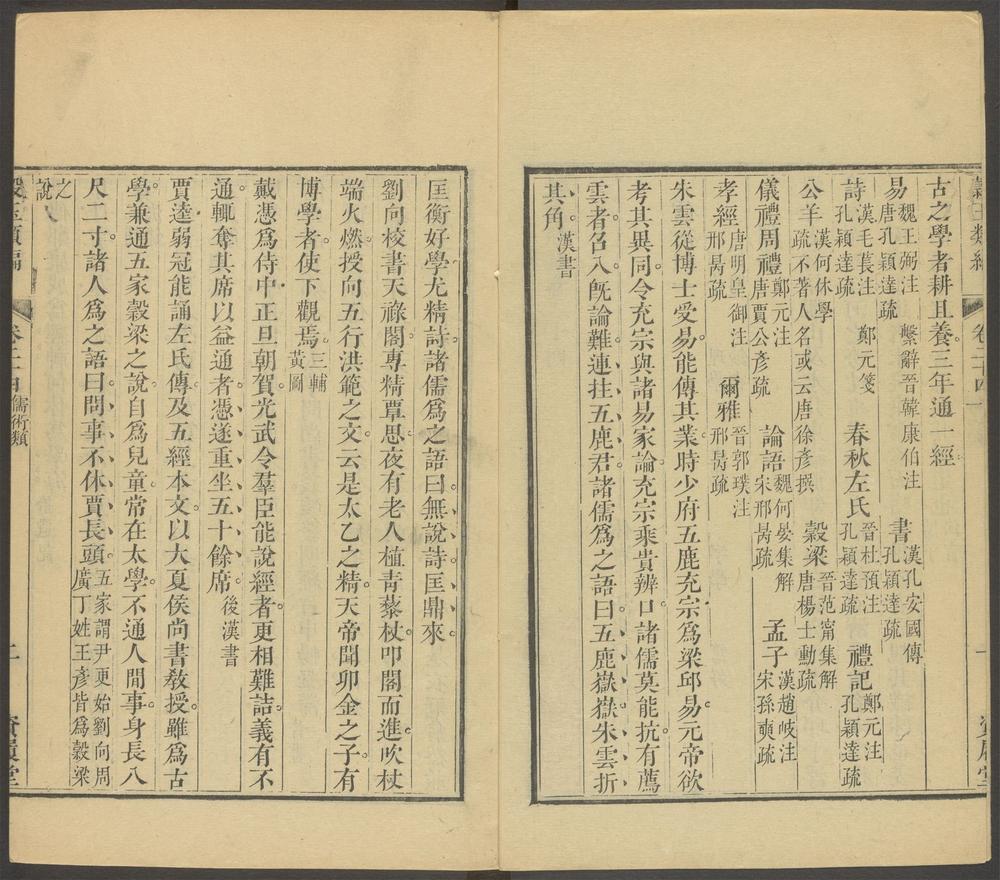 古之學者耕且養三年通一經
易 魏王弼注 唐孔穎達疏 繫辭晉韓康伯注 書 漢孔安國傳 孔穎達疏
詩 漢毛萇注 孔穎達疏 鄭元箋 春秋左氏 晉杜預注 孔穎達疏 禮記 鄭元注 孔穎達疏
公羊 漢何休學 疏不著人名或云唐徐彥撰 穀梁 晉范甯集解 唐楊士勳疏
儀禮周禮 鄭元注 唐賈公彥疏 論語 魏何晏集解 宋邢昺疏 孟子 漢趙岐注 宋孫奭疏
孝經 唐明皇御注 邢昺疏 爾雅 晉郭璞注 邢昺疏
朱雲從博士受易能傳其業時少府五鹿充宗爲梁邱易元帝欲
考其異同令充宗與諸易家論充宗乘貴辨口諸儒莫能抗有薦
雲者召入旣論難連拄五鹿君諸儒爲之語曰五鹿嶽嶽朱雲折
其角 漢書
匡衡好學尤精詩諸儒爲之語曰無說詩匡鼎來
劉向校書天祿閣專精覃思夜有老人植青藜杖叩閣而進吹杖
端火燃授向五行洪範之文云是太乙之精天帝聞卯金之子有
博學者使下觀焉 三輔黃圖
戴憑爲侍中正旦朝賀光武令羣臣能說經者更相難詰義有不
通輒奪其席以益通者憑遂重坐五十餘席 後漢書
賈逵弱冠能誦左氏傳及五經本文以大夏侯尚書敎授雖爲古
學兼通五家穀梁之說自爲兒童常在太學不通人間事身長八
尺二寸諸人爲之語曰問事不休賈長頭 五家謂尹更始劉向周廣丁姓王彥皆爲穀梁
之說
卷二十四 儒術類
二